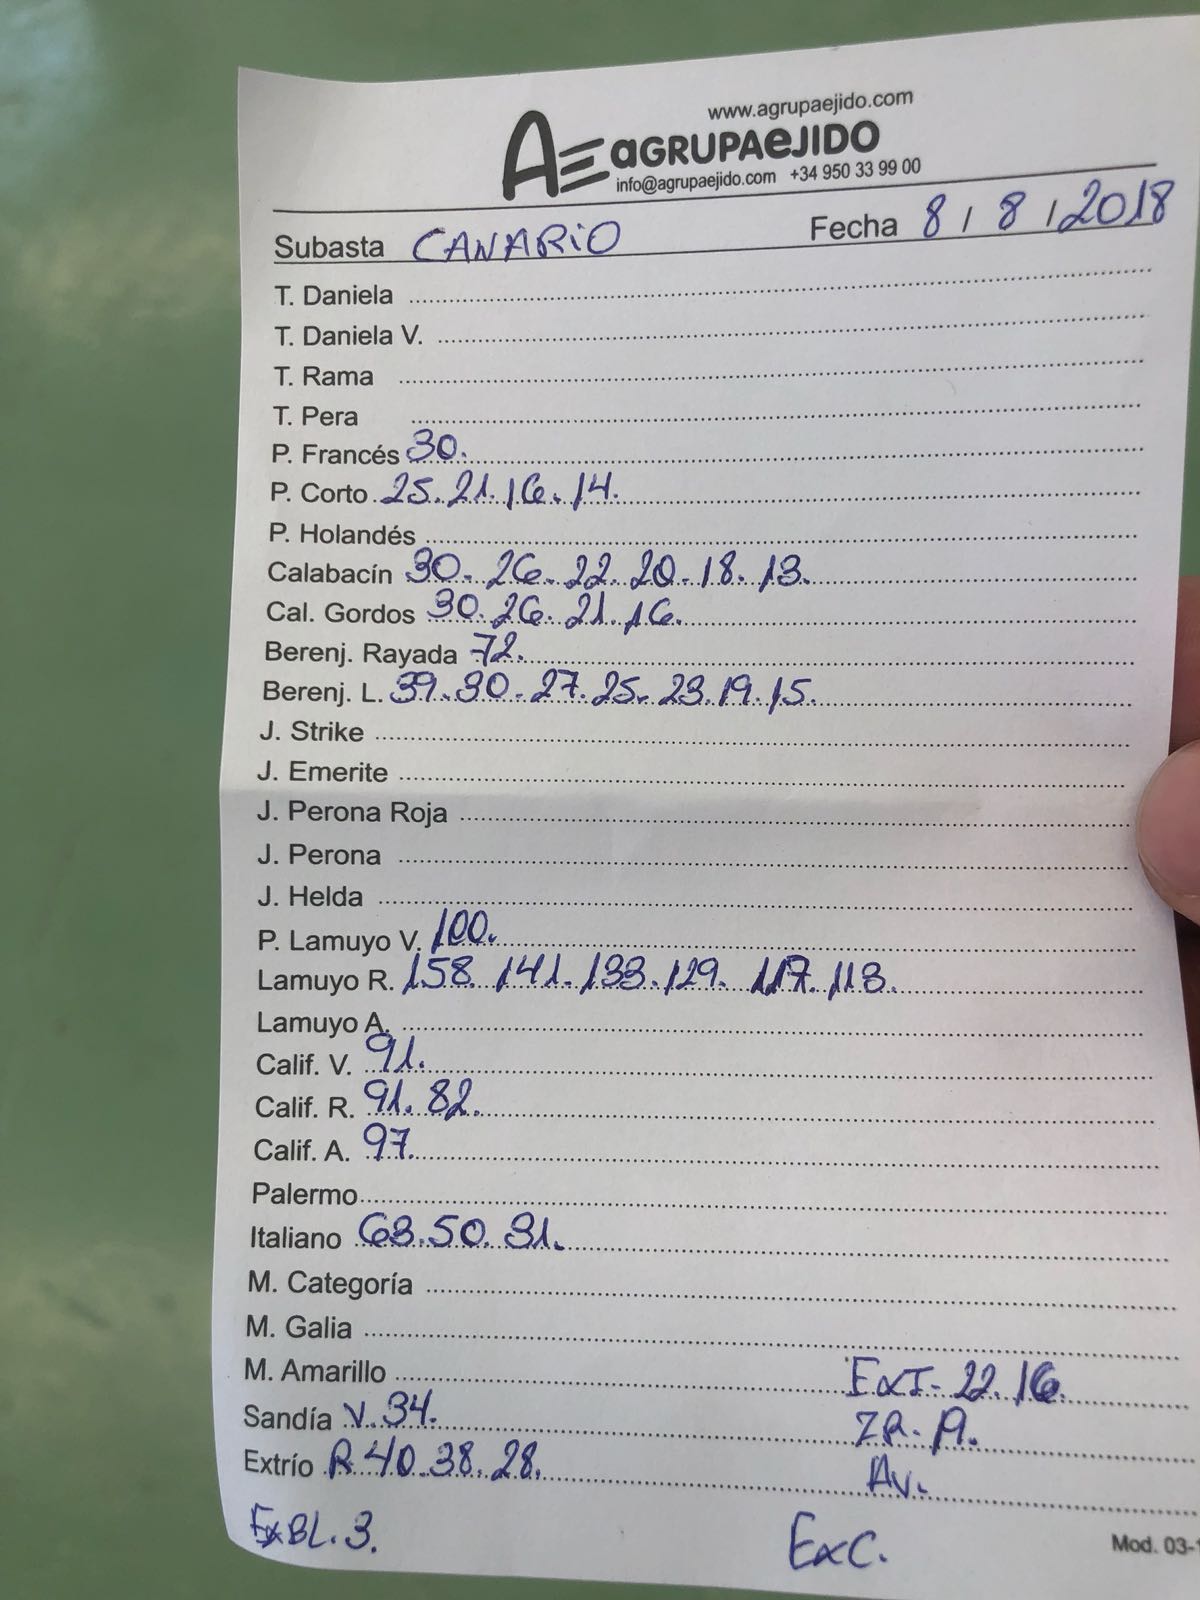 www.agrupaejido.com
AE aGRUPAeJIDO
info@agrupaejido.com +34 950 33 99 00
Subasta CANARIO Fecha 8 / 8 / 2018
T. Daniela
T. Daniela V.
T. Rama
T. Pera
P. Francés 30.
P. Corto 25. 21. 16. 14.
P. Holandés
Calabacín 30. 26. 22. 20. 18. 13.
Cal. Gordos 30. 26. 21. 16.
Berenj. Rayada 72.
Berenj. L. 39. 30. 27. 25. 23. 19. 15.
J. Strike
J. Emerite
J. Perona Roja
J. Perona
J. Helda
P. Lamuyo V. 100.
Lamuyo R. 158. 141. 133. 129. 117. 113.
Lamuyo A.
Calif. V. 91.
Calif. R. 91. 82.
Calif. A. 97.
Palermo
Italiano 63. 50. 31.
M. Categoría
M. Galia
M. Amarillo ExT- 22. 16.
Sandía V. 34. ZR. 19.
Extrío R 40. 38. 28. AV.
ExBL. 3. ExC.
Mod. 03-1